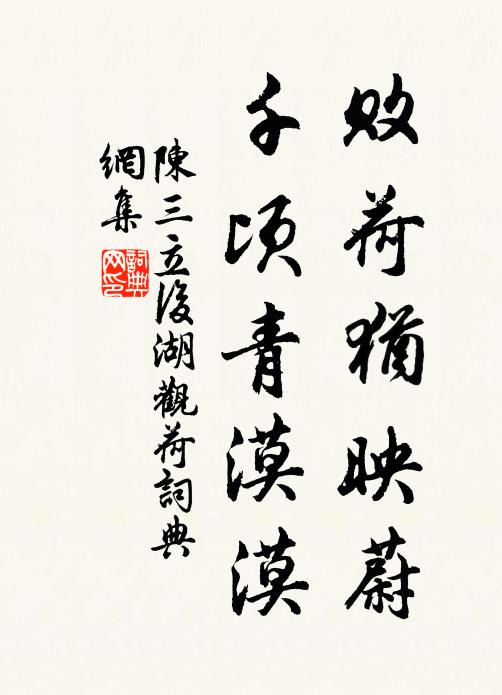 敗荷猶映蔚
千頃青漠漠
陳三立後湖觀荷詞典
網集
詞典
网印